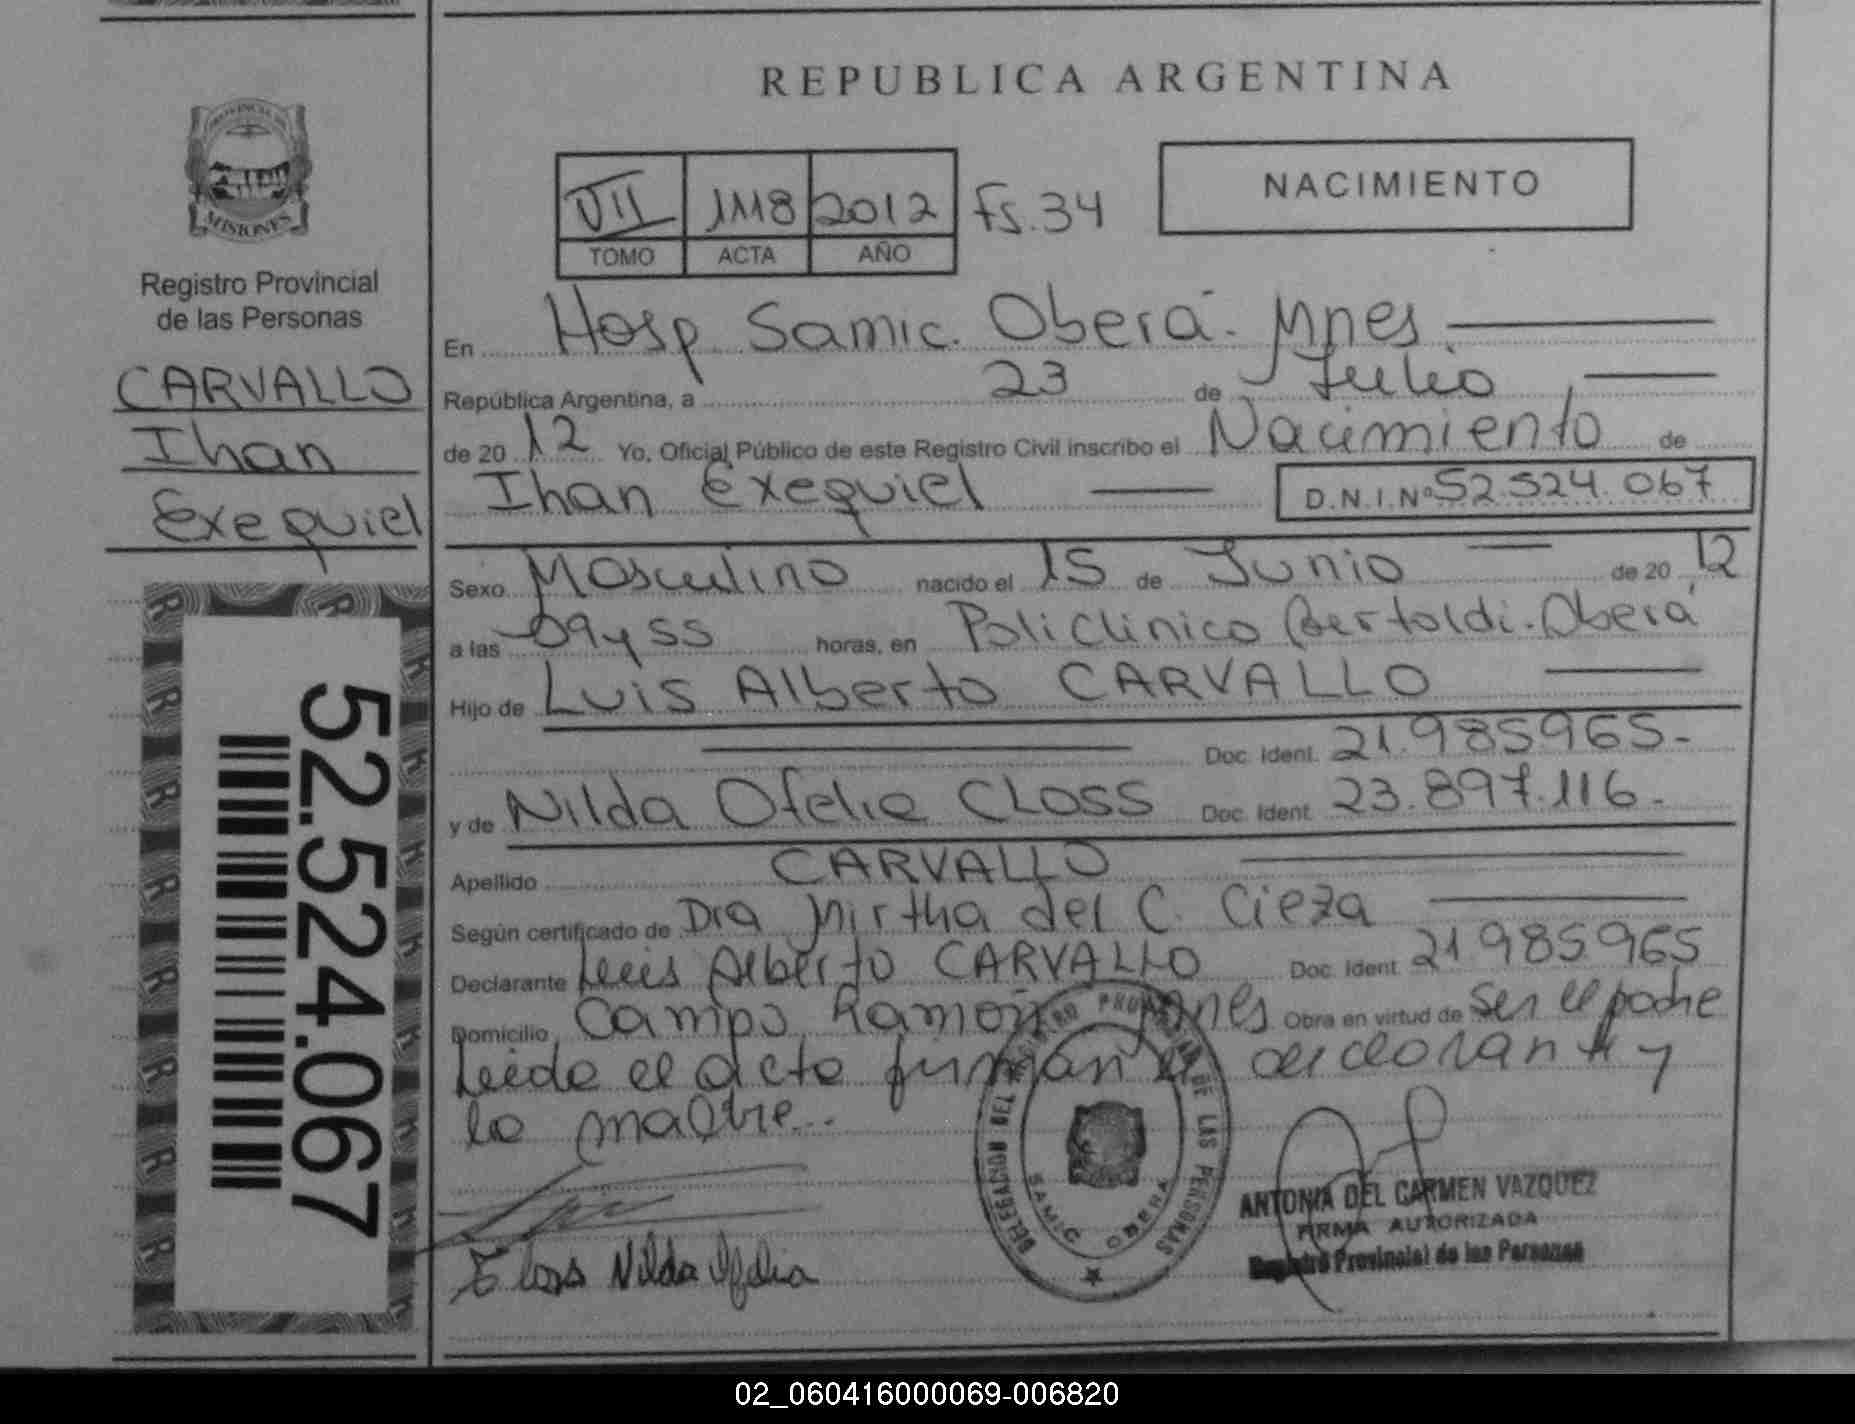 REPUBLICA ARGENTINA
PROVINCIA DE
MISIONES
Registro Provincial
de las Personas
CARVALLO
Ihan
Exequiel
52.524.067
VII 1118 2012 Fs. 34
TOMO ACTA AÑO
NACIMIENTO
En Hosp. Samic. Oberá - Mnes
República Argentina, a 23 de Julio
de 20 12 Yo, Oficial Público de este Registro Civil inscribo el Nacimiento de
Ihan Exequiel D.N.I.Nº 52.524.067
Sexo Masculino nacido el 15 de Junio de 20 12
a las 09y55 horas, en Policlinico Bertoldi. Oberá
Hijo de Luis Alberto CARVALLO
Doc. Ident. 21.985965.-
y de Nilda Ofelia CLOSS Doc. Ident. 23.897.116.-
Apellido CARVALLO
Según certificado de Dra Mirtha del C. Cieza
Declarante Luis Alberto CARVALLO Doc. Ident. 21985965
Domicilio Campo Ramón Mnes Obra en virtud de Ser el padre
Leida el acta firman el declarante y
la madre..-
Closs Nilda Ofelia
DELEGACION DEL REGISTRO PROVINCIAL DE LAS PERSONAS
SAMIC OBERA
ANTONIA DEL CARMEN VAZQUEZ
FIRMA AUTORIZADA
Registro Provincial de las Personas
02_060416000069-006820